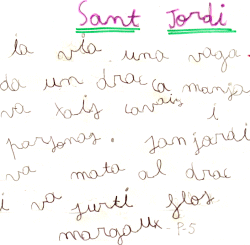 Sant Jordi
la via una vaga
da un drac ca manja
va tais cavais i
parsonas. San jardi
va mata al drac
i va surti flos
margaux P-5